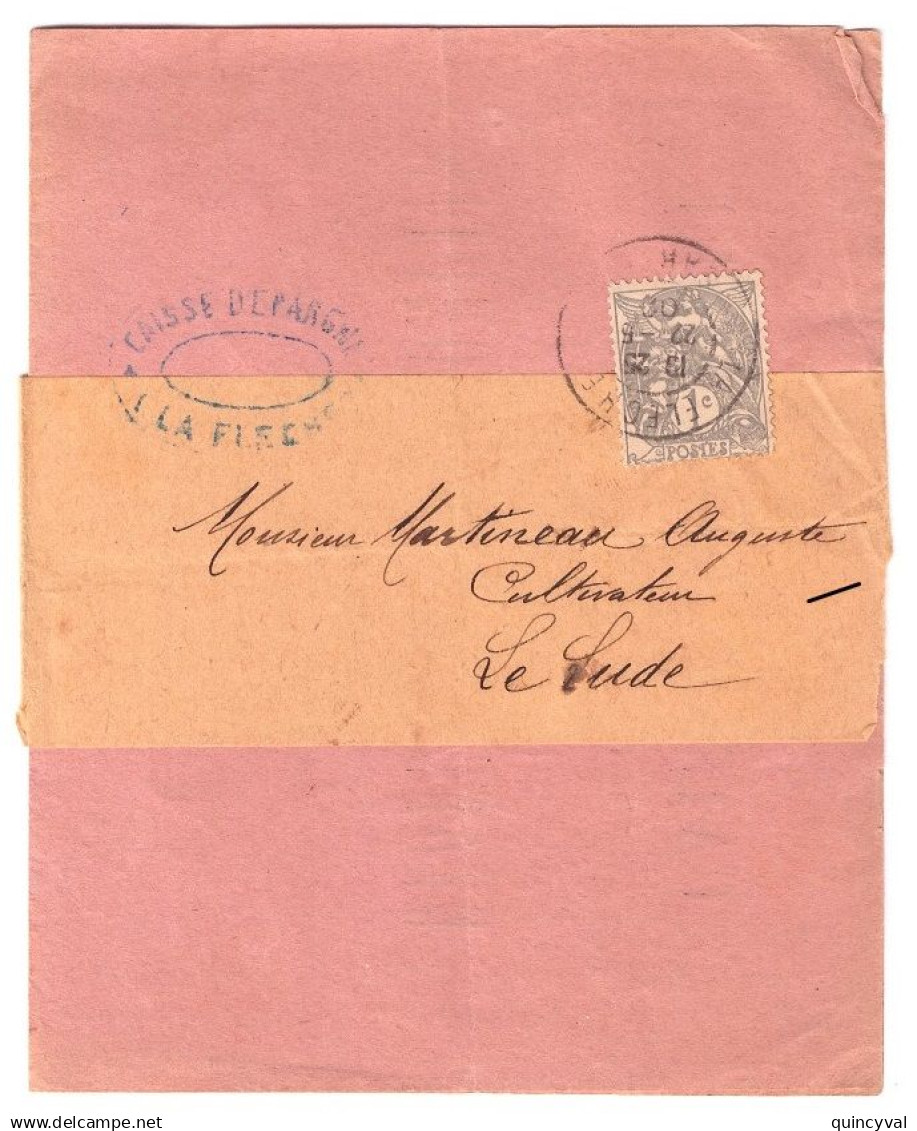 CAISSE D'EPARGNE
LA FLECHE
LA FLECHE
1 c
POSTES
Monsieur Martineau Auguste
Cultivateur
Le Lude
delcampe.net
quincyval